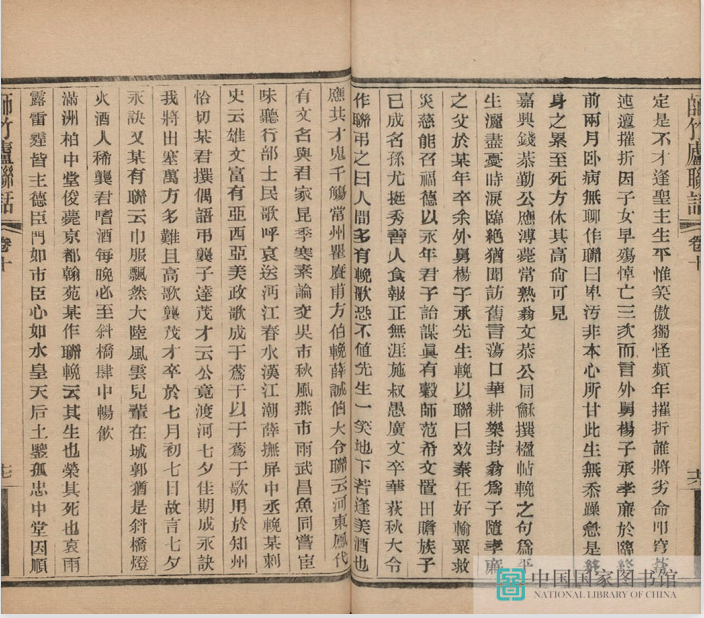 師竹廬聯話 卷十
定是不才逢聖主生平惟笑傲獨怪頻年摧折誰將劣命叩穹蒼
迍邅摧折因子女早殤悼亡三次而言外舅楊子承孝廉於臨終
前兩月卧病無聊作聯曰卑汚非本心所甘此生無忝躁急是終
身之累至死方休其高尚可見
嘉興錢恭勤公應溥薨常熟翁文恭公同龢撰楹帖輓之句爲平
生灑盡憂時淚臨絶猶聞訪舊言蕩口華耕樂封翁爲子隨孝廉
之父於某年卒余外舅楊子承先生輓以聯曰效秦任好輸粟救
災慈能召福德以永年君子詒謀眞有穀師范希文置田贍族子
已成名孫尤挺秀善人食報正無涯施叔愚廣文卒華荻秋大令
作聯弔之曰人間多有輓歌恐不値先生一笑地下若逢美酒也
應共才鬼千觴常州瞿賡甫方伯輓薛誠伯大令聯云河東鳳代
有文名與君家昆季寒素論交吳市秋風燕市雨武昌魚同嘗宦
味聽行部士民歌呼哀送沔江春水漢江潮薛撫屏中丞輓某刺
史云雄文富有亞西亞美政歌成于蔿于以于蔿于歌用於知州
恰切某君撰偶語弔龔子達茂才云公竟渡河七夕佳期成永訣
我將出塞萬方多難且高歌龔茂才卒於七月初七日故言七夕
永訣又某有聯云巾服飄然大陸風雲兒輩在城郭猶是斜橋燈
火酒人稀龔君嗜酒每晚必至斜橋肆中暢飲
滿洲柏中堂俊薨京都翰苑某作聯輓云其生也榮其死也哀雨
露雷霆皆主德臣門如市臣心如水皇天后土鑒孤忠中堂因順
師竹廬聯話 卷十
中国国家图书馆
NATIONAL LIBRARY OF CHINA